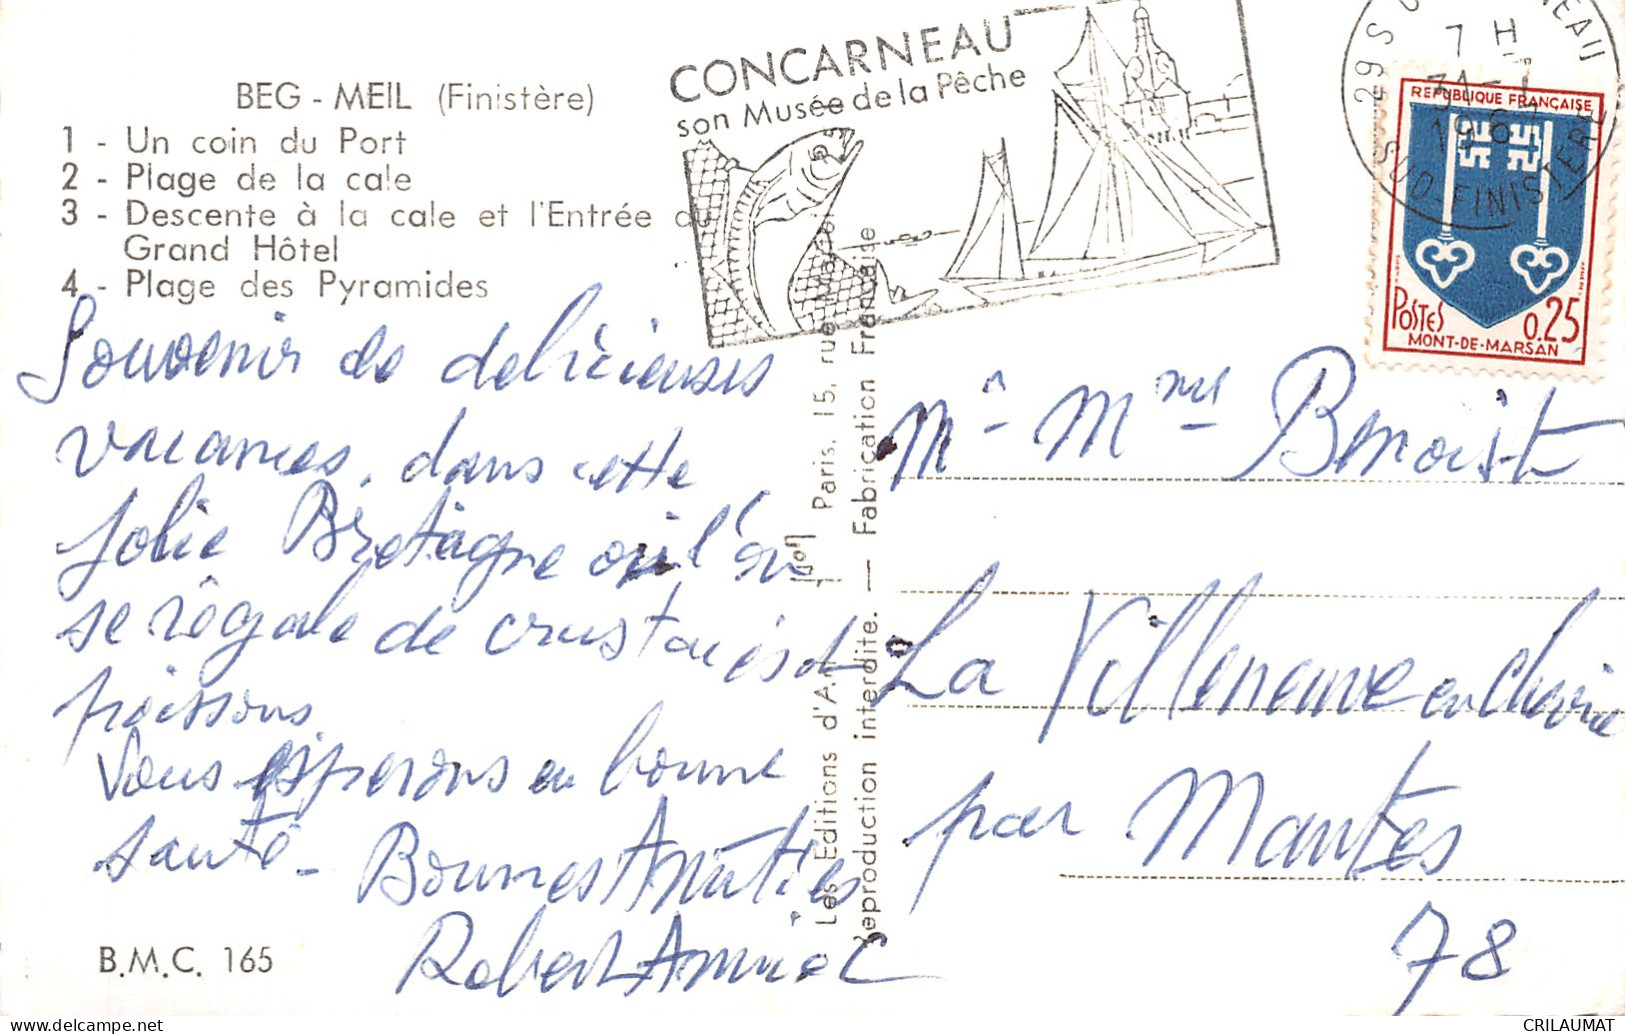 BEG - MEIL (Finistère)
1 - Un coin du Port
2 - Plage de la cale
3 - Descente à la cale et l'Entrée du
Grand Hôtel
4 - Plage des Pyramides
CONCARNEAU
son Musée de la Pêche
29 S CONCARNEAU
7 H
31-7
1967
SUD-FINISTERE
REPUBLIQUE FRANÇAISE
POSTES 0,25
MONT-DE-MARSAN
Souvenir de délicieuses
vacances, dans cette
jolie Bretagne où l'on
se régale de crustacés et
poissons
Vous espérons en bonne
santé - Bonnes Amitiés
Robert Annie C
Les Editions d'Art Yvon Paris, 15, rue Martel
Reproduction interdite. — Fabrication Française
Mr - Mme Benoist
La Villeneuve en Chevrie
par Mantes
78
B.M.C. 165
CRILAUMAT